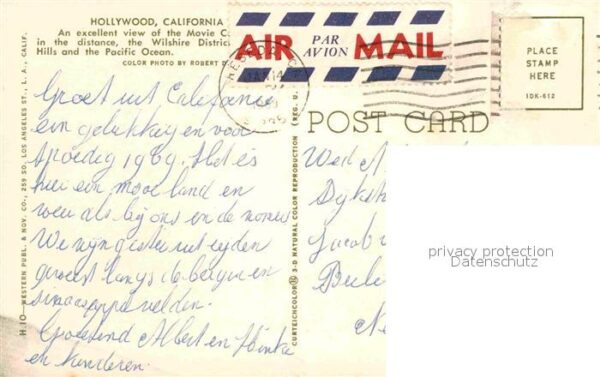 HOLLYWOOD, CALIFORNIA
An excellent view of the Movie C
in the distance, the Wilshire District
Hills and the Pacific Ocean.
COLOR PHOTO BY ROBERT D
AIR PAR AVION MAIL
PLACE
STAMP
HERE
IDK-612
POST CARD
H.10—WESTERN PUBL. & NOV. CO., 259 SO. LOS ANGELES ST., L. A., CALIF.
CURTEICHCOLOR 3-D NATURAL COLOR REPRODUCTION (REG. U.
Groet uit Californie
een gelukkig en voor
spoedig 1969. Het is
hier een mooi land en
weer als bij ons in de
We zijn gister uit
geweest langs de bergen en
sinaasappelvelden.
Groetend Albert en
en kinderen.
Wed
Dijkst
Jacob
privacy protection
Datenschutz